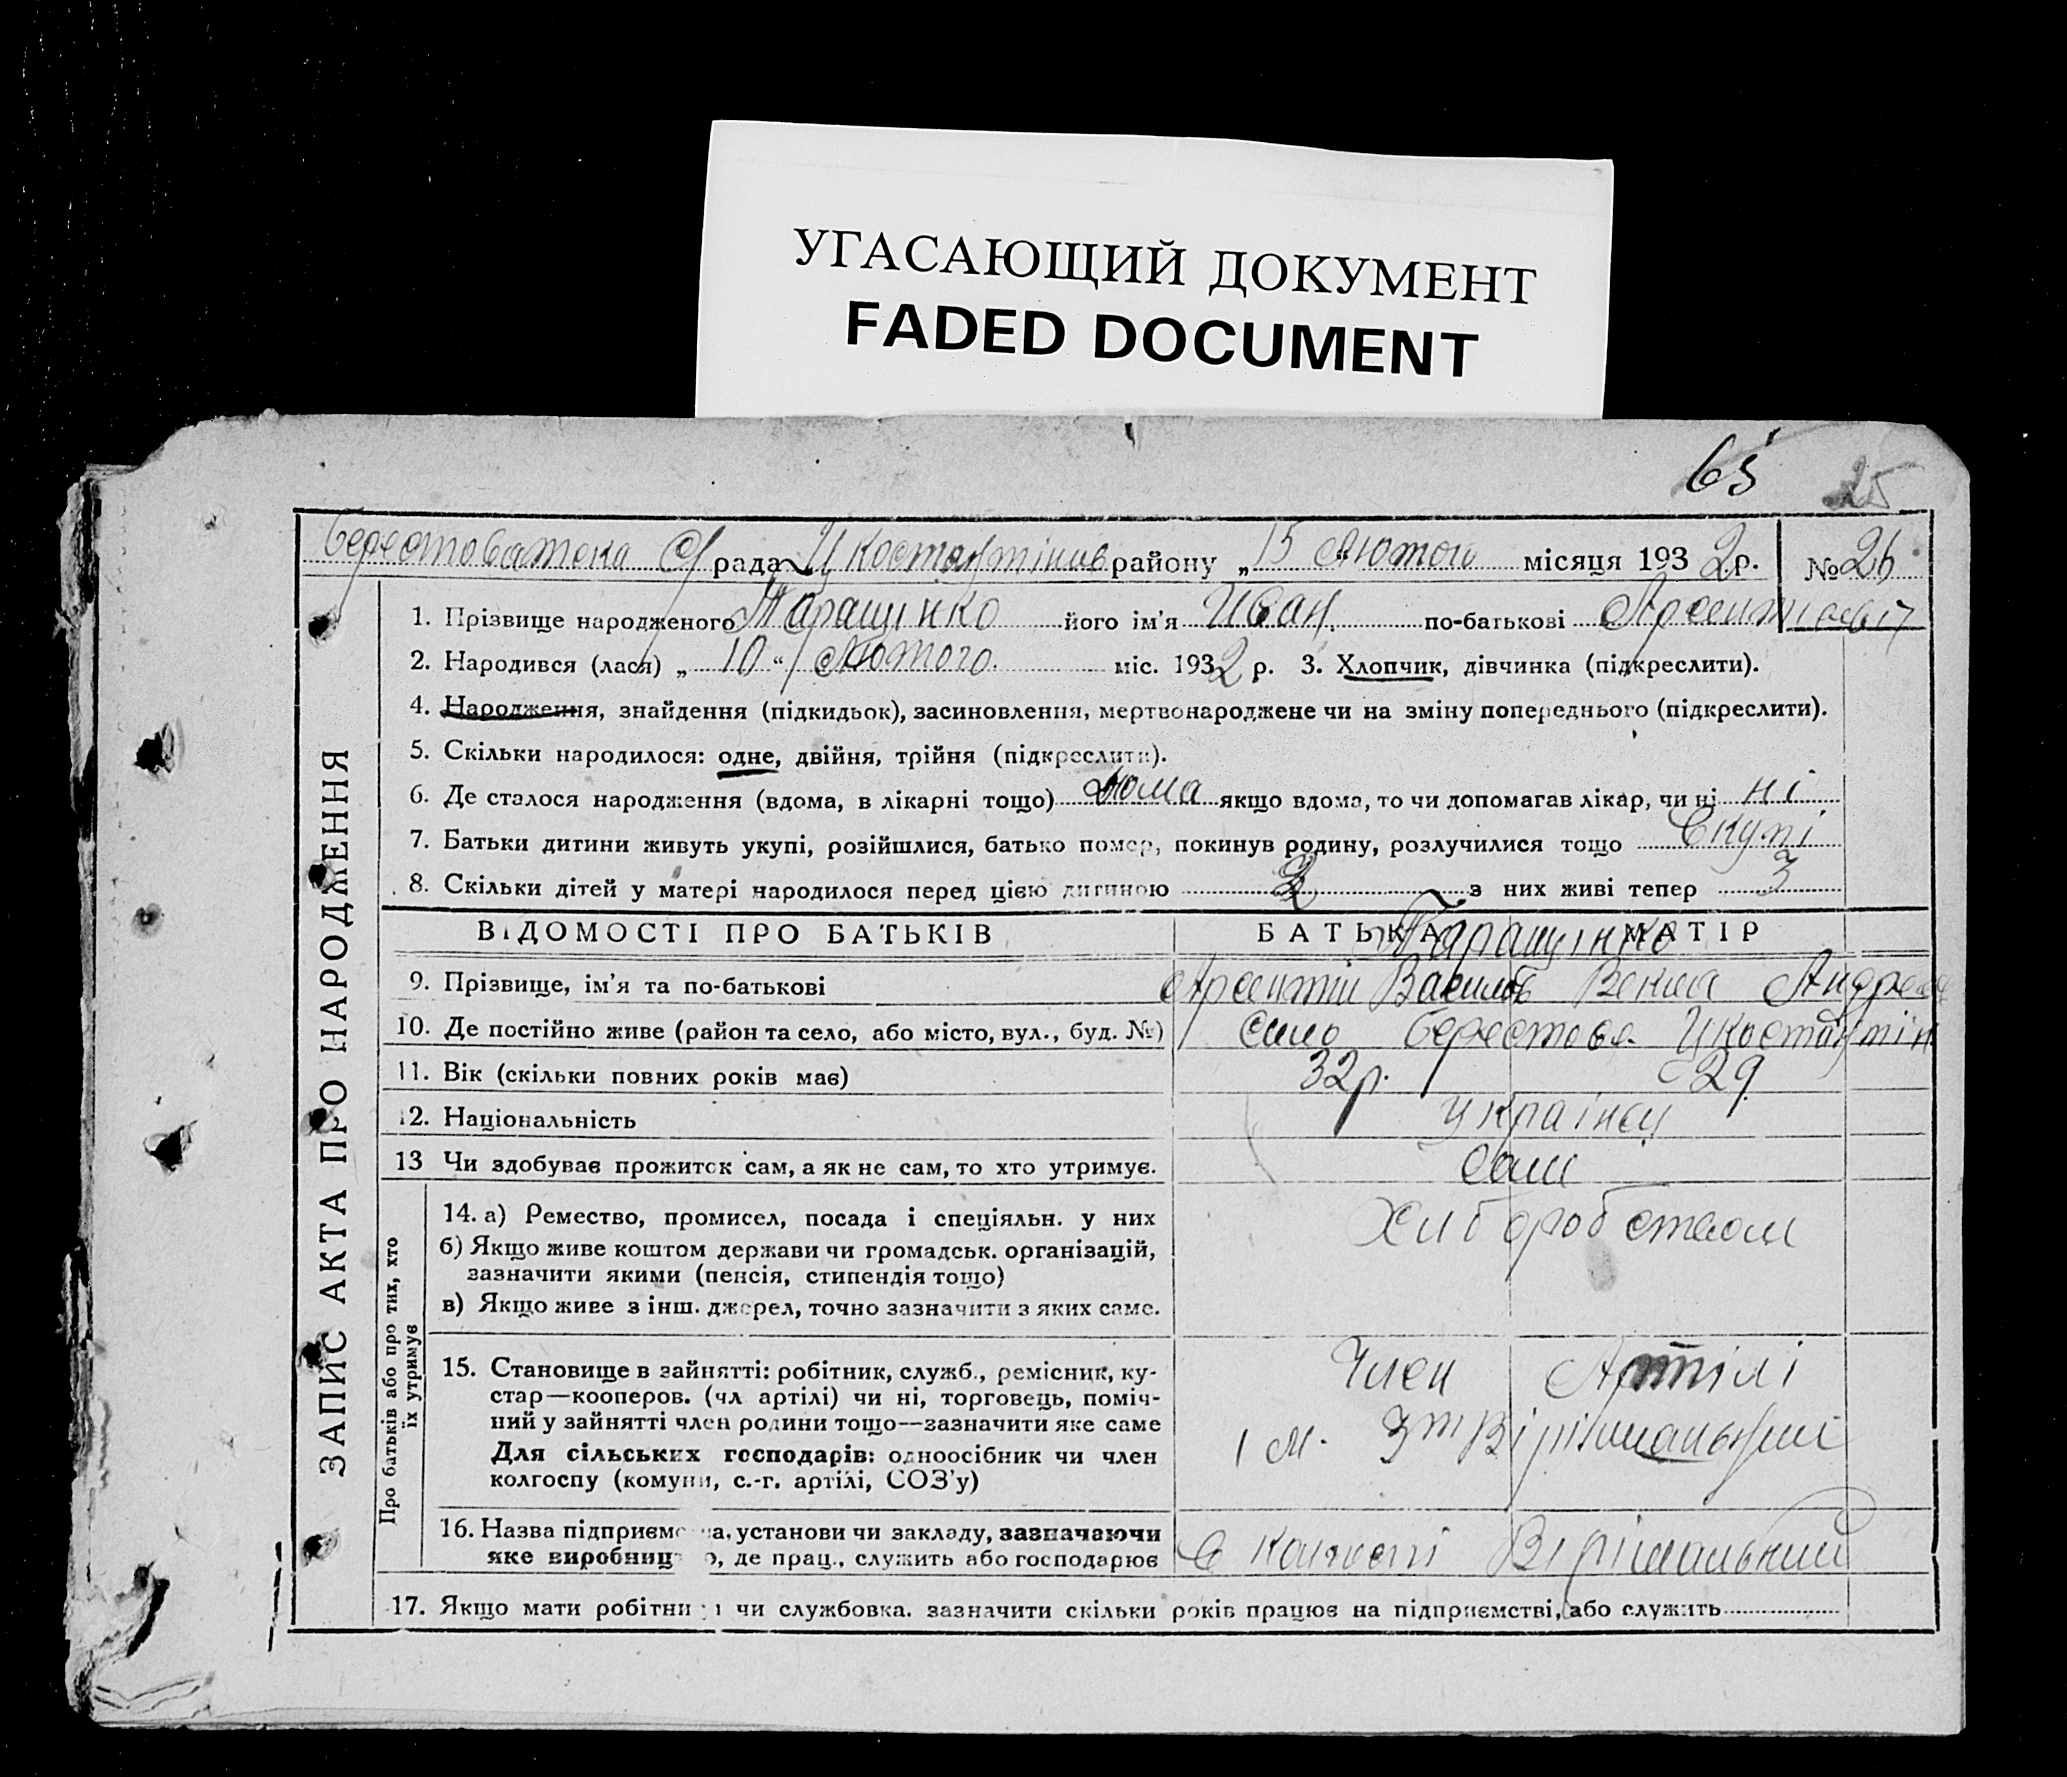 УГАСАЮЩИЙ ДОКУМЕНТ
FADED DOCUMENT
65 25
Берестоватска С/рада Цкостянтінів району „ 15 “ Лютого місяця 1932 р. № 26
ЗАПИС АКТА ПРО НАРОДЖЕННЯ
1. Прізвище народженого Таращінко його ім'я Иван по-батькові
2. Народився (лася) „ 10 “ Лютого міс. 1932 р. 3. Хлопчик, дівчинка (підкреслити).
4. Народження, знайдення (підкидьок), засиновлення, мертвонароджене чи на зміну попереднього (підкреслити).
5. Скільки народилося: одне, двійня, трійня (підкреслити).
6. Де сталося народження (вдома, в лікарні тощо) Дома якщо вдома, то чи допомагав лікар, чи ні ні
7. Батьки дитини живуть укупі, розійшлися, батько помер, покинув родину, розлучилися тощо Вкупі
8. Скільки дітей у матері народилося перед цією дитиною з них живі тепер 3
ВІДОМОСТІ ПРО БАТЬКІВ БАТЬКА МАТІР
Таращінко
9. Прізвище, ім'я та по-батькові Арсентій Васильов Андреев
10. Де постійно живе (район та село, або місто, вул., буд. №) село Берестове. Цкостянтін
11. Вік (скільки повних років має) 32р. 29
12. Національність українец
13 Чи здобуває прожиток сам, а як не сам, то хто утримує. Сам
Про батьків або про тих, хто їх утримує
14. а) Ремество, промисел, посада і спеціяльн. у них
б) Якщо живе коштом держави чи громадськ. організацій,
зазначити якими (пенсія, стипендія тощо)
в) Якщо живе з інш. джерел, точно зазначити з яких саме.
15. Становище в зайнятті: робітник, служб., ремісник, ку-
стар—кооперов. (чл артілі) чи ні, торговець, поміч-
ний у зайнятті член родини тощо—зазначити яке саме
Для сільських господарів: одноосібник чи член
колгоспу (комуни, с.-г. артілі, СОЗ'у)
Член Артілі
16. Назва підприємства, установи чи закладу, зазначаючи
яке виробництво, де прац., служить або господарює
17. Якщо мати робітниця чи службовка. зазначити скільки років працює на підприємстві, або служить